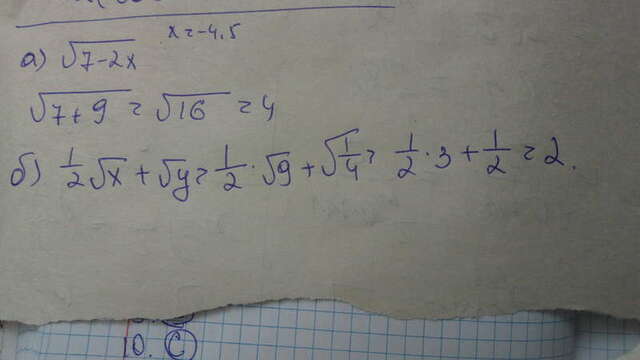 x=-4,5
а) √7-2x
√7+9 = √16 = 4
б) 1/2 √x + √y = 1/2 · √9 + √1/4 = 1/2 · 3 + 1/2 = 2.
10. C